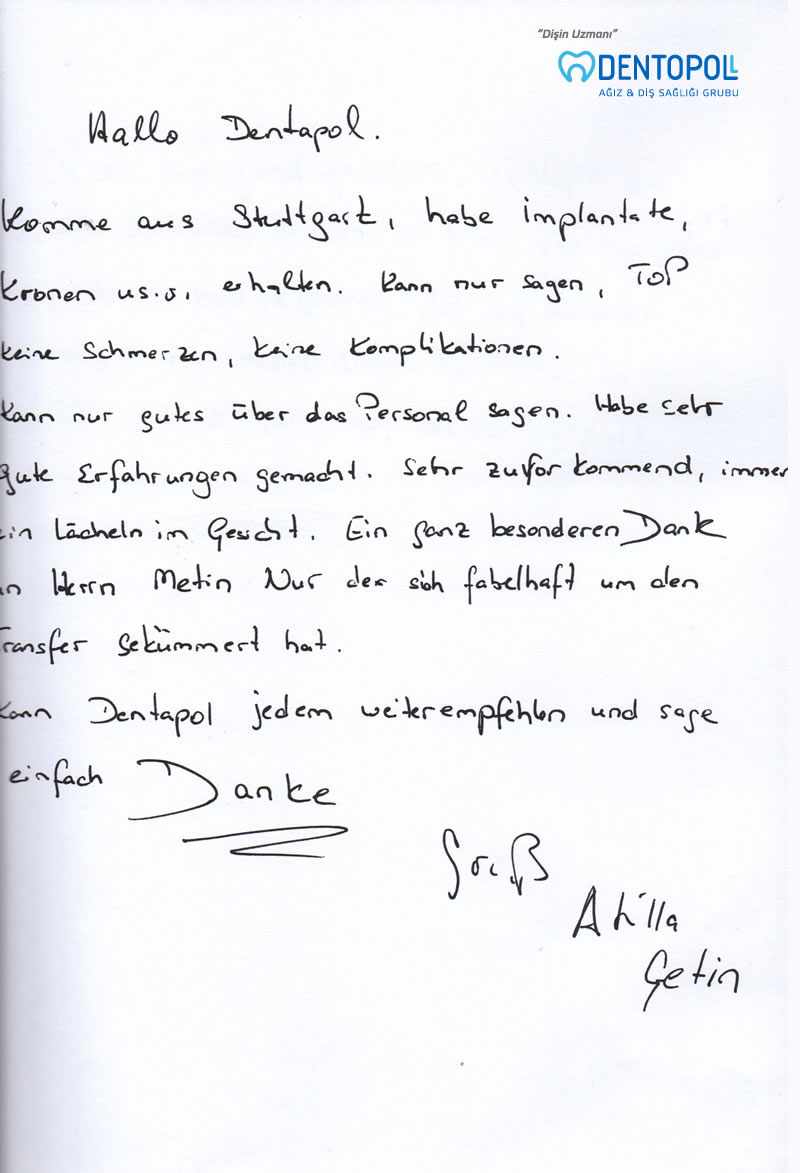 "Dişin Uzmanı"
DENTOPOLL
AĞIZ & DİŞ SAĞLIĞI GRUBU
Hallo Dentapol.
Komme aus Stuttgart, habe implantate,
Kronen us.w. erhalten. Kann nur sagen, TOP
keine Schmerzen, keine Komplikationen.
Kann nur gutes über das Personal sagen. Habe sehr
gute Erfahrungen gemacht. Sehr zuforkommend, immer
ein Lächeln im Gesicht. Ein ganz besonderen Dank
an Herrn Metin Nur der sich fabelhaft um den
Transfer gekümmert hat.
Kann Dentapol jedem weiterempfehlen und sage
einfach Danke
Gruß
Atilla
Çetin